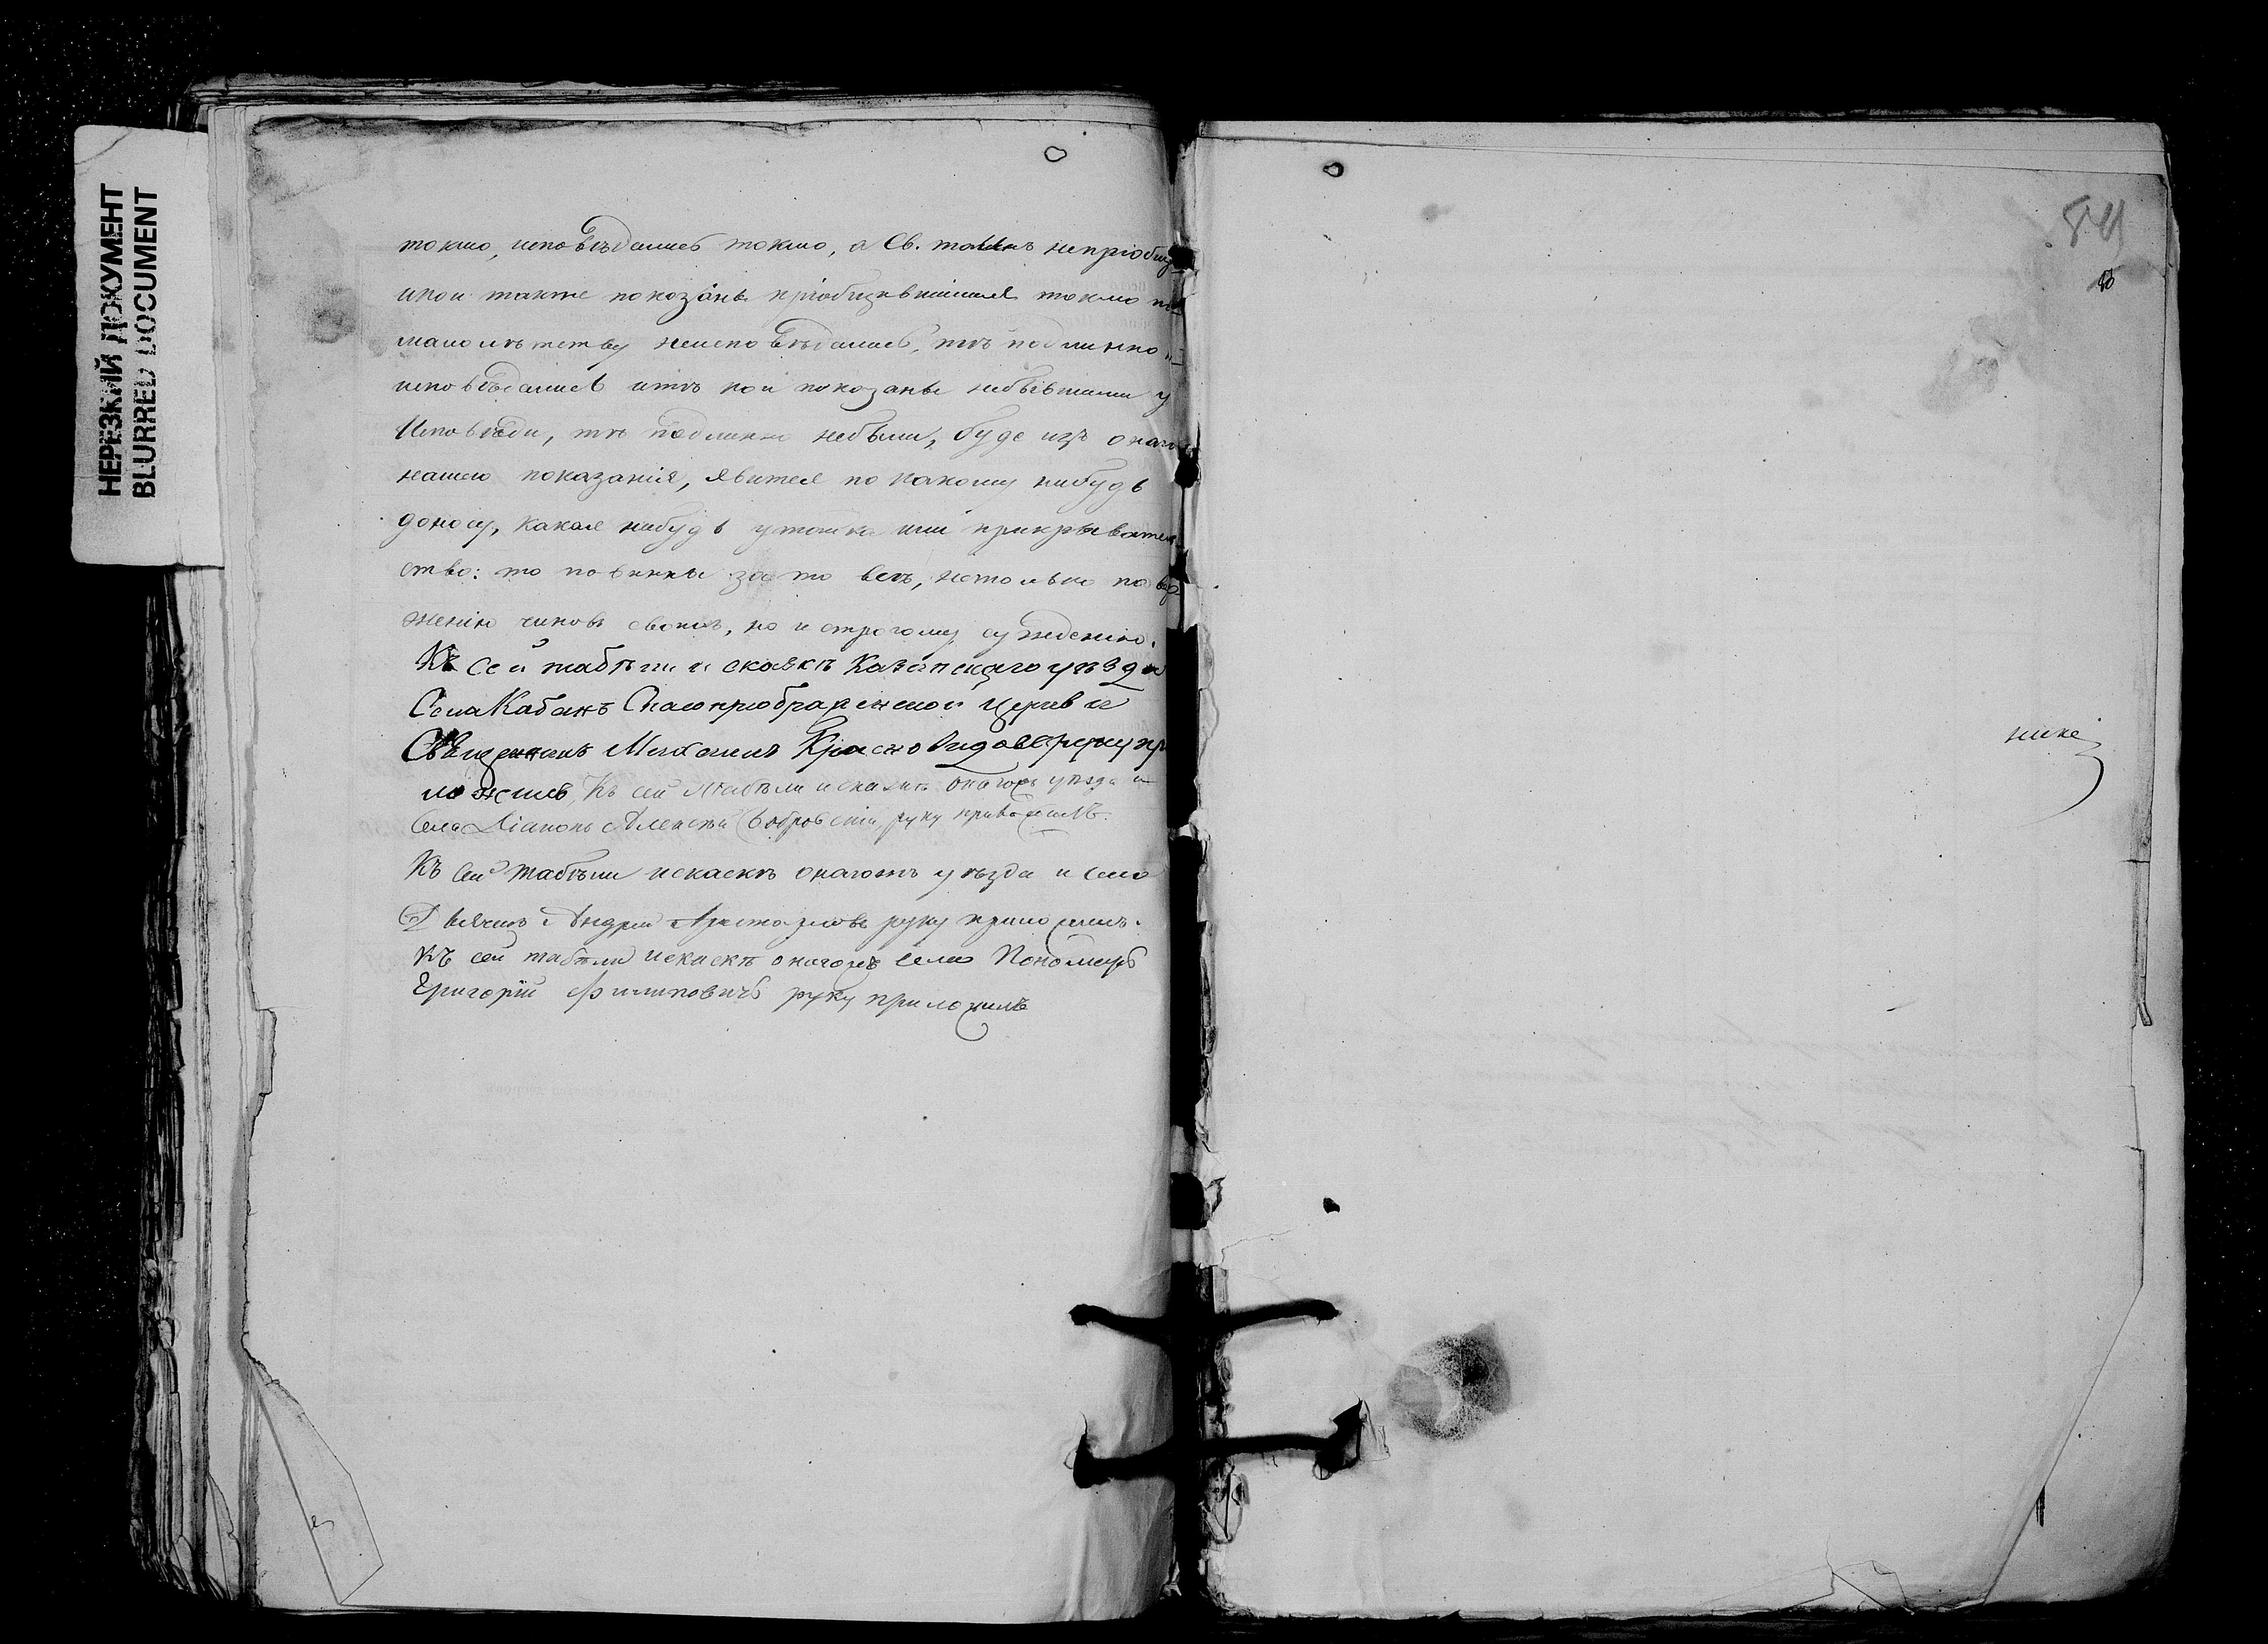 НЕРЕЗКИЙ ДОКУМЕНТ
BLURRED DOCUMENT
токмо, исповѣдались токмо, а Св. таинъ непріобщ
икои также показаны пріобщившимися токмо по
малолѣтству неисповѣдались, тѣ подлинно
исповѣдались итѣ кои показаны небывшими у
Исповѣди, тѣ подлинно небыли, буде изъ онаго
нашего показанія, явится по какому нибудь
доносу, какая нибудь утайка или прикрыватель
ство: то повинны зато всѣ, нетолько
женію чиновъ своихъ, но и строгому сужденію.
Къ сей табѣли и скаскѣ Казанскаго уѣзда
Села Кабанъ Спасопреображенской Церкви
Священникъ Михаилъ Красновидовъ руку при
ложилъ, Къ сей табѣли искаскѣ онагожъ уѣзда и
Села Діаконъ Алексѣй Бобровскій руку приложилъ.
Къ сей табѣли искаскѣ онагожъ уѣзда и села
Дьячикъ Андрей Аристарховъ руку приложилъ.
Къ сей табѣли искаскѣ онагожъ села Пономарь
Григорій Филиповичь руку приложилъ